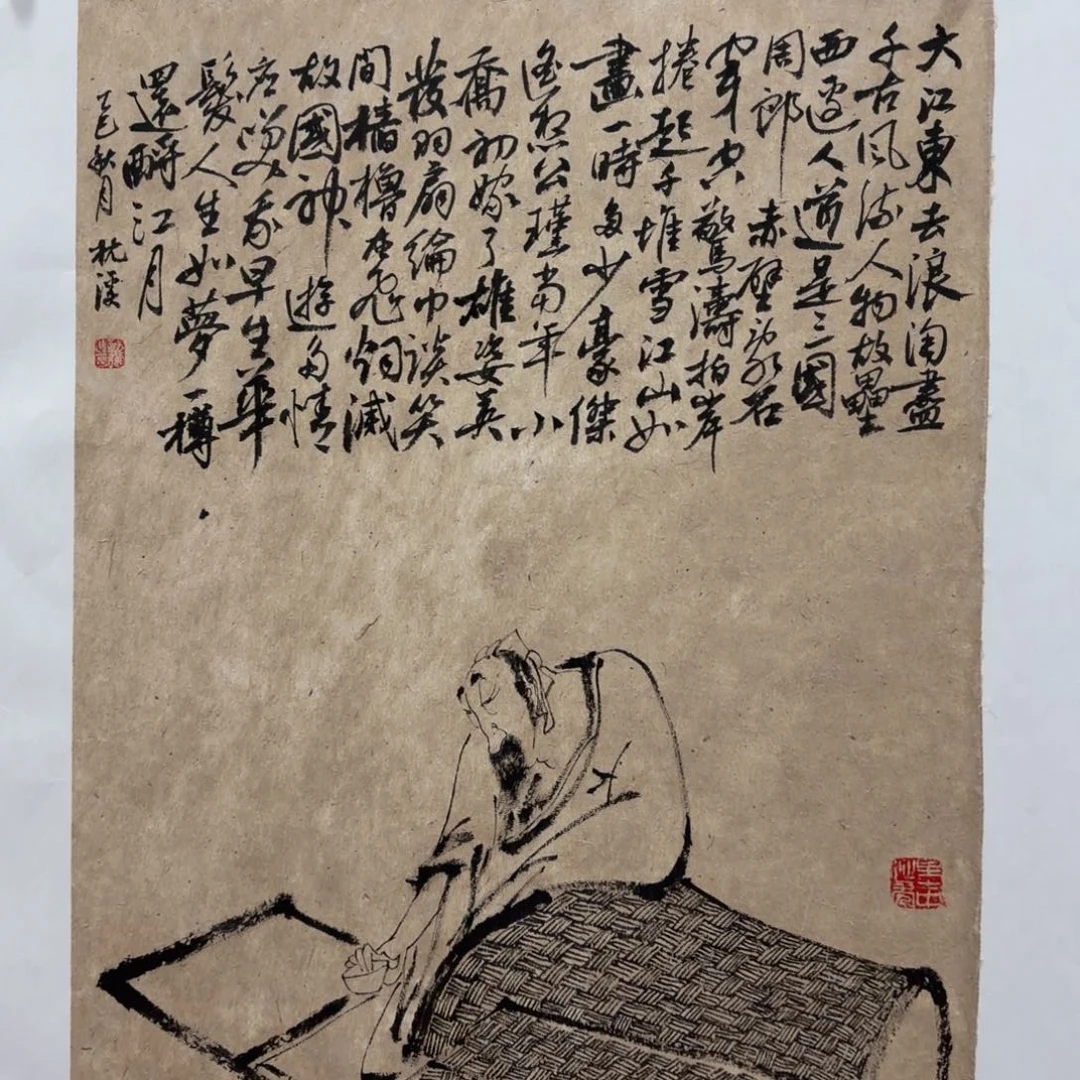 大江東去浪淘盡
千古風流人物故壘
西邊人道是三國
周郎赤壁亂石
穿空驚濤拍岸
捲起千堆雪江山如
畫一時多少豪傑
遙想公瑾當年小
喬初嫁了雄姿英
發羽扇綸巾談笑
間檣櫓灰飛烟滅
故國神遊多情
應笑我早生華
髮人生如夢一樽
還酹江月
乙巳秋月 枕溪